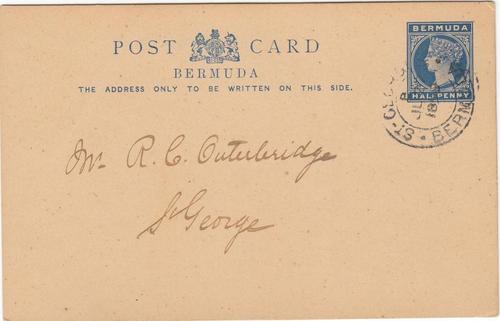 POST CARD
BERMUDA
THE ADDRESS ONLY TO BE WRITTEN ON THIS SIDE.
BERMUDA
HALFPENNY
Mr R. C. Outerbridge
St George